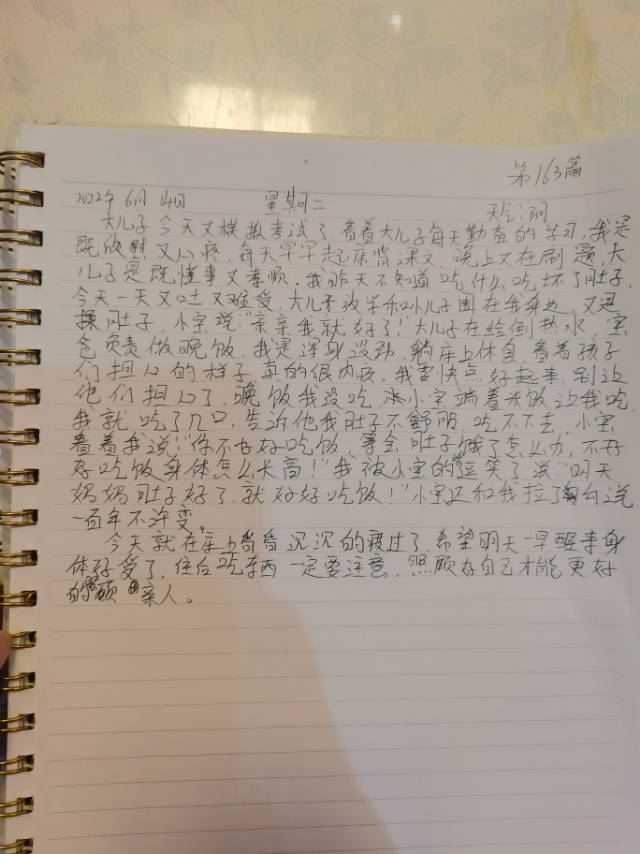 第163篇
2022年6月14日 星期二 天气:雨
大儿子今天又模拟考试了,看着大儿子每天勤奋的学习,我是
既欣慰又心疼,每天早早起床背课文,晚上又在刷题,大
儿子是既懂事又孝顺。我昨天不知道吃什么吃坏了肚子,
今天一天又吐又难受,大儿子放学和小儿子围在我身边,又是
揉肚子,小宝说:“亲亲我就好了!”大儿子在给倒热水,宝
爸负责做晚饭,我是浑身没劲,躺床上休息,看着孩子
们担心的样子,真的很内疚,我要快点好起来,别让
他们担心了,晚饭我没吃,小宝端着米饭让我吃,
我就吃了几口,告诉他我肚子不舒服,吃不下去,小宝
看着我说:“你不好好吃饭,等会肚子饿了怎么办,不好
好吃饭身体怎么长高!”我被小宝的逗笑了,说:“明天
妈妈肚子好了,就好好吃饭!”小宝还和我拉了勾勾说
一百年不许变。
今天就在床上昏昏沉沉的度过了,希望明天一早醒来身
体好受了,往后吃东西一定要注意,照顾好自己才能更好
的照顾亲人。